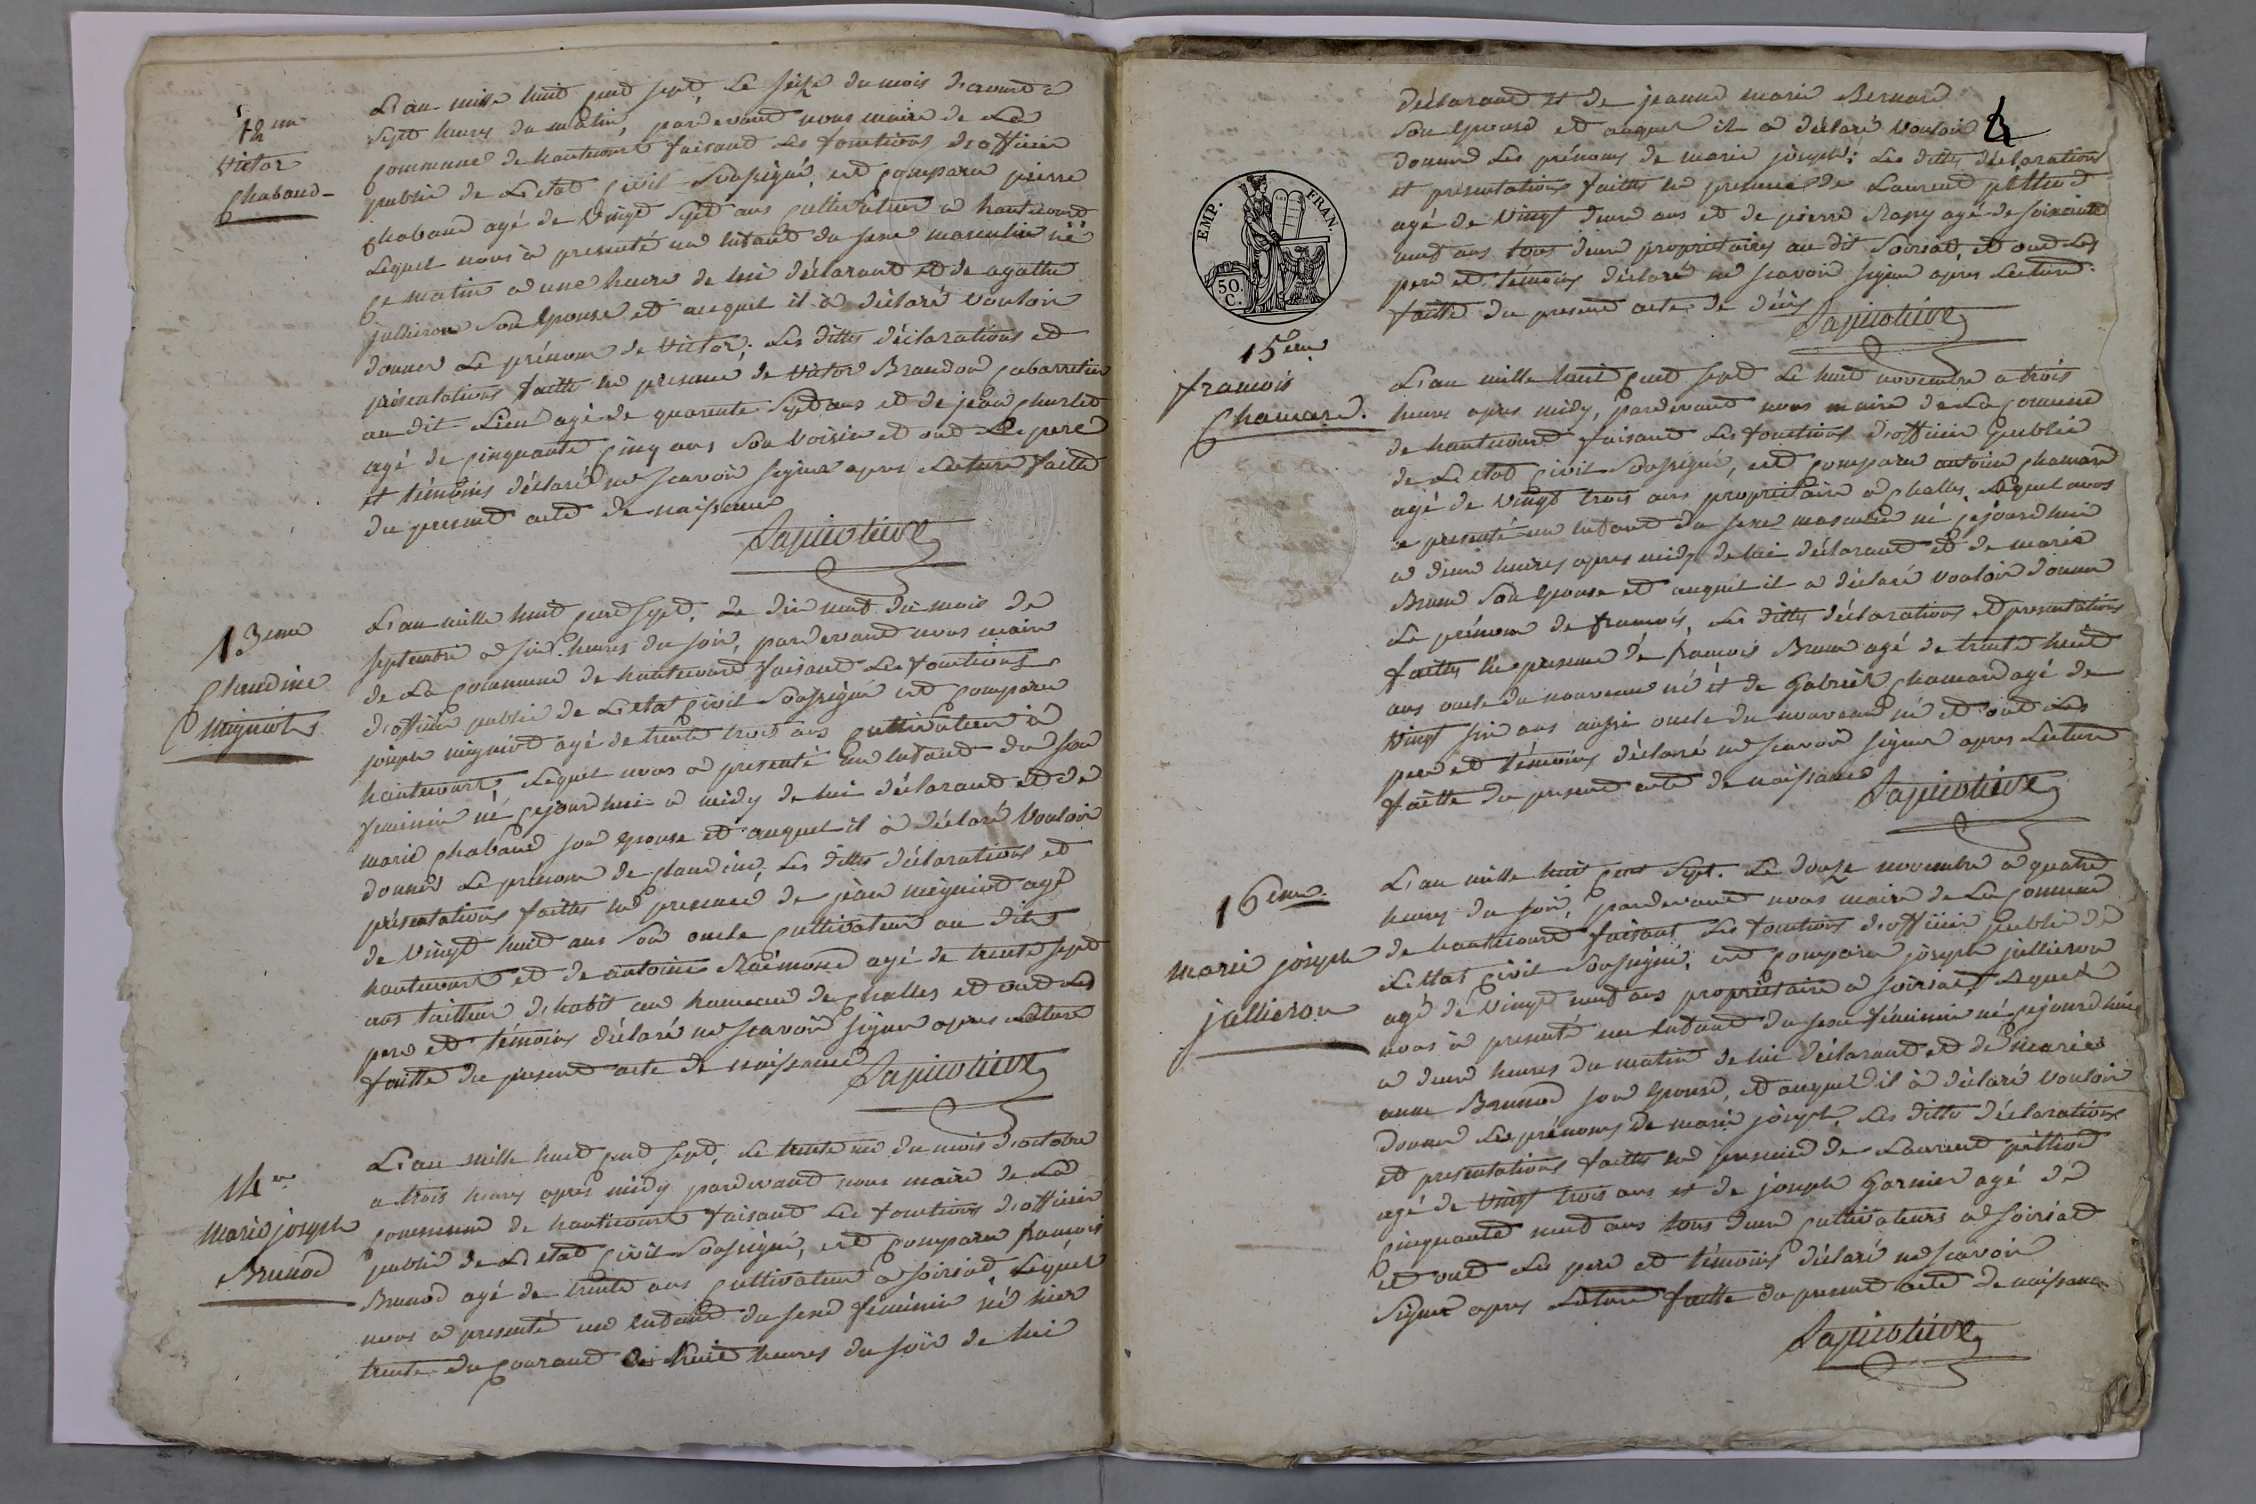 12em
Victor
Chabaud
L'an mille huit cent sept, Le seize du mois d'aoust a
sept heures du matin, pardevant nous maire de La
commune de hautecourt faisant Les fonctions d'officier
public de L'etat civil soussigné, est comparu pierre
chabaud agé de vingt sept ans cultivateur a hautecourt
Lequel nous à presenté un enfant du sexe masculin né
ce matin a une heure de lui déclarant et de agathe
jullieron son épouse et auquel il a déclaré vouloir
donner Le prénom de Victor; Les dittes déclarations et
présentations faitte en presence de Victor Brandon cabarretier
au dit Lieu agé de quarente sept ans et de jean Charlet
agé de cinquante cinq ans son voisin et ont Le pere
et témoins déclaré ne scavoir signer apres Lecture faitte
du present acte de naissance
13eme
Claudine
Migniot
L'an mille huit cent sept, Le dix neuf du mois de
septembre a six heures du soir, pardevant nous maire
de La commune de hautecourt faisant Les fonctions
d'officier public de L'etat civil soussigné est comparu
joseph migniot agé de trente trois ans cultivateur à
hautecourt, Lequel nous a presenté un enfant du sexe
feminin né cejourdhui a midy de lui déclarant et de
marie chabaud son épouse et auquel il à déclaré vouloir
donner Le prenom de claudine, Les dittes déclarations et
présentations faittes en presence de jean migniot agé
de vingt huit ans son oncle cultivateur au dit
hautecourt et de antoine agé de trente sept
ans tailleur d'habit au hameau de challes et ont Les
pere et témoins déclaré ne scavoir signer apres Lecture
faitte du present acte de naissance
14em
Marie joseph
Brunod
L'an mille huit cent sept, Le trente un du mois d'octobre
a trois heures apres midy pardevant nous maire de La
commune de hautecourt faisant Les fonctions d'officier
public de L'etat civil soussigné, est comparu francois
Brunod agé de trente ans cultivateur a soiriat, Lequel
nous a presenté un enfant du sexe féminin né hier
trente du courant a huit heures du soir de lui
déclarant et de jeanne marie Bernard
son épouse et auquel il a déclaré vouloir
donner Les prénoms de marie joseph; Les dittes déclarations
et présentations faittes en presence de Laurent
agé de vingt deux ans et de pierre agé de soixante
neuf ans tous deux propriétaires au dit soiriat, et ont Les
pere et témoins déclaré ne scavoir signer apres Lecture
faitte du present acte de
EMP. FRAN.
50. C.
15eme
francois
Chanard.
L'an mille huit cent sept Le huit novembre a trois
heures apres midy, pardevant nous maire de La comune
de hautecourt faisant Les fonctions d'officier public
de L'etat civil soussigné, est comparu antoine chanard
agé de vingt trois ans propriétaire a challes, Lequel nous
a presenté un enfant du sexe masculin né cejourdhui
a deux heures apres midy de lui déclarant et de marie
Brun son épouse et auquel il a déclaré vouloir donner
Le prénom de francois, Les dittes déclarations et presentations
faittes en presence de francois Brun agé de trente huit
ans oncle du nouveau né et de Gabriel chanard agé de
vingt six ans aussi oncle du nouveau né et ont Les
pere et témoins déclaré ne scavoir signer apres Lecture
faitte du present acte de naissance
16eme
Marie joseph
jullieron
L'an mille huit cent sept. Le douze novembre a quatre
heures du soir, pardevant nous maire de La commune
de hautecourt faisant Les fonctions d'officier public de
L'ettat civil soussigné, est comparu joseph jullieron
agé de vingt neuf ans propriétaire a soiriat, Lequel
nous à presenté un enfant du sexe féminin né cejourdhui
a deux heures du matin de lui déclarant et de marie
anne Brunod son épouse, et auquel il à déclaré vouloir
donner Les prénoms de marie joseph, Les dittes déclarations
et présentations faittes en presence de Laurent
agé de vingt trois ans et de joseph Garnier agé de
cinquante neuf ans tous deux cultivateurs a soiriat
et ont Les pere et témoins déclaré ne scavoir
signer apres Lecture faitte du present acte de naissance